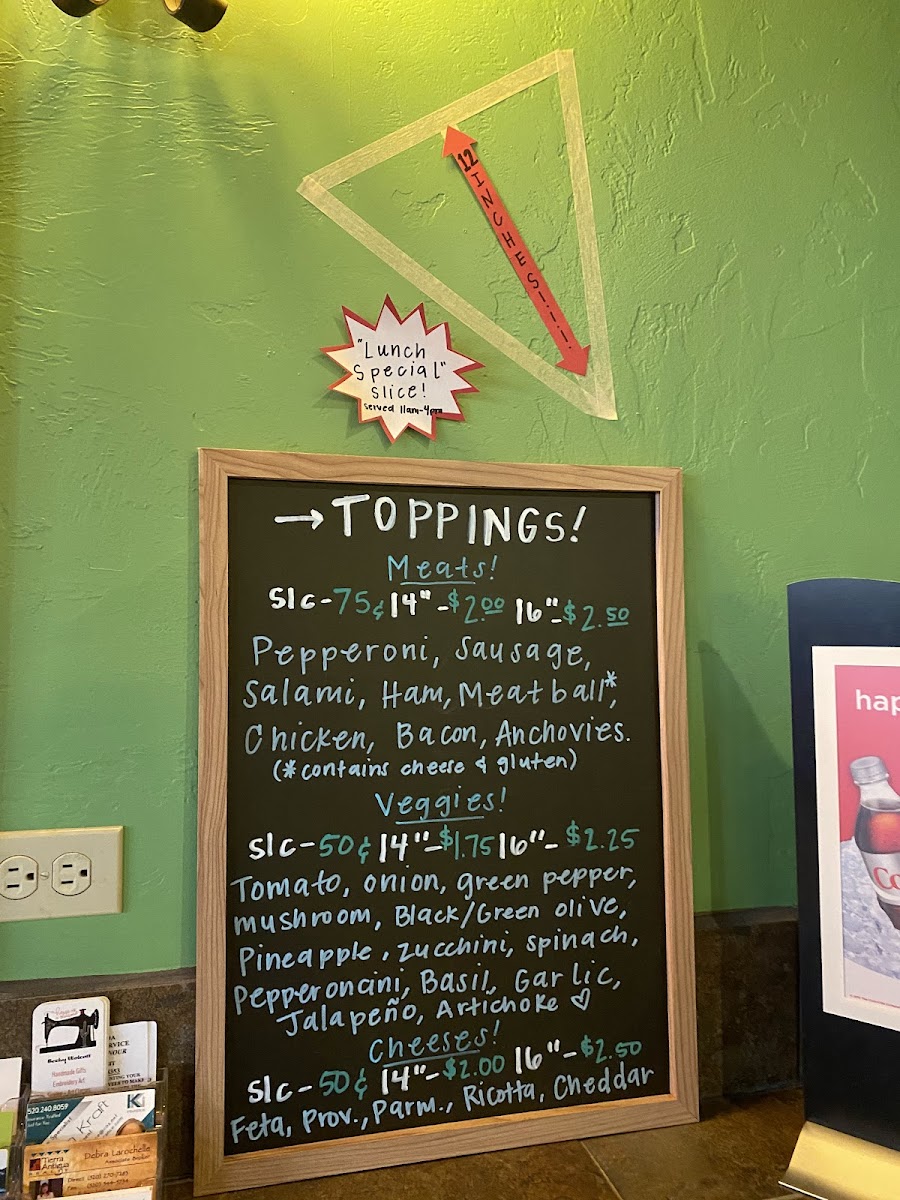 12 INCHES!.!.!.
"Lunch
Special"
slice!
served 11am-4pm
→ TOPPINGS!
Meats!
Slc-75¢ 14"-$2.00 16"-$2.50
Pepperoni, Sausage,
Salami, Ham, Meatball*,
Chicken, Bacon, Anchovies.
(*contains cheese & gluten)
Veggies!
slc-50¢ 14"-$1.75 16"-$2.25
Tomato, onion, green pepper,
mushroom, Black/Green olive,
Pineapple, zucchini, spinach,
Pepperoncini, Basil, Garlic,
Jalapeño, Artichoke ♡
Cheeses!
Slc-50¢ 14"-$2.00 16"-$2.50
Feta, Prov., Parm., Ricotta, Cheddar
hap
Co
Handmade Gifts
Embroidery Art
520.240.8059
Kraft
Tierra
Antigua
Debra Larochelle